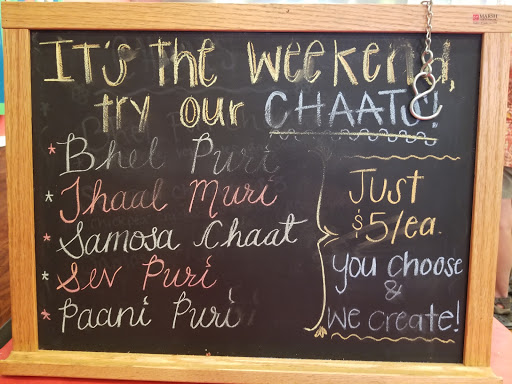 It's the weekend,
try our CHAATS!
* Bhel Puri
* Jhaal Muri
* Samosa Chaat
* Sev Puri
* Paani Puri
Just
$5/ea.
you choose
&
we create!